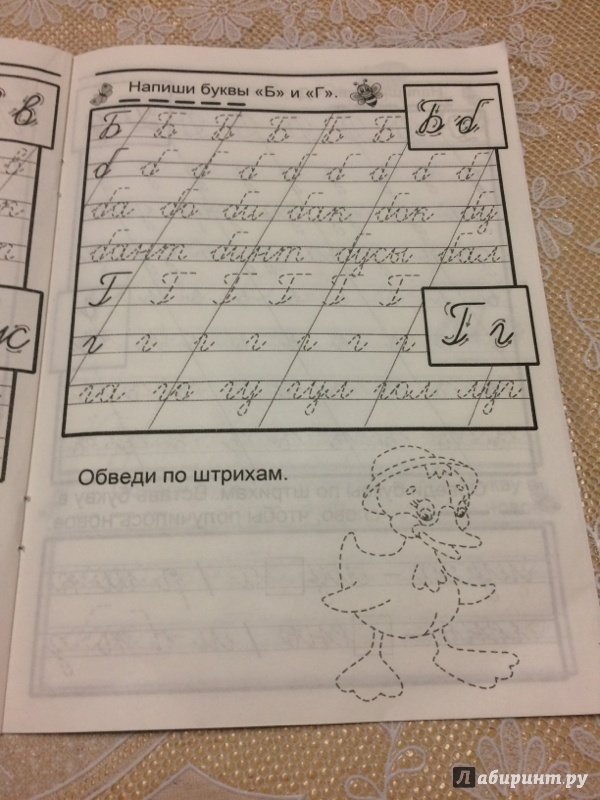 Напиши буквы «Б» и «Г».
Б Б Б Б Б Б Б б
б б б б б б б б б
ба бо би бак бок бу
бант бинт бусы бал
Г Г Г Г Г Г
г г г г г г г Г г
га го гу гул гол луг
Обведи по штрихам.
в
Лабиринт.ру